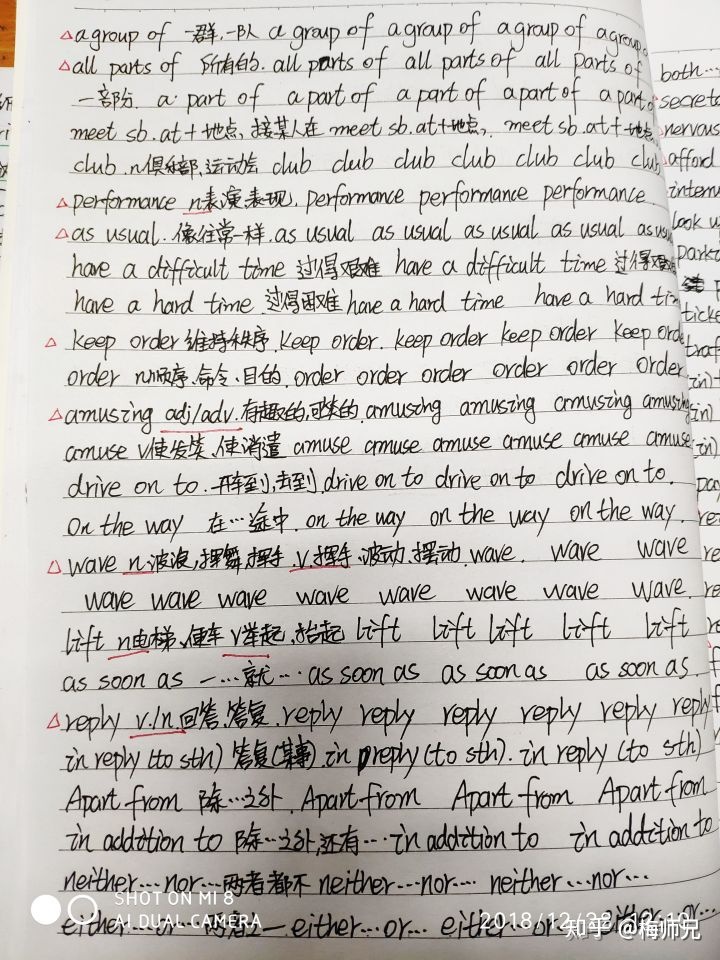 △a group of 一群,一队 a group of a group of a group of a group o
△all parts of 所有的. all parts of all parts of all parts of
一部分. a part of a part of a part of a part of a part o
meet sb. at+地点, 接某人在 meet sb. at+地点, meet sb. at+地点
club. n俱乐部,运动会 club club club club club club club
△performance n表演 表现. performance performance performance.
△as usual. 像往常一样. as usual as usual as usual as usual as usu
have a difficult time 过得艰难 have a difficult time 过得艰难
have a hard time. 过得困难 have a hard time have a hard tim
△ keep order 维持秩序. keep order. keep order keep order keep orde
order n顺序、命令、目的. order order order order order order
△amusing adj/adv. 有趣的,可笑的. amusing amusing amusing amusing
amuse v使发笑、使消遣 amuse amuse amuse amuse amuse amuse
drive on to. 开车到,去到, drive on to drive on to drive on to.
On the way 在…途中. on the way on the way on the way.
△ wave n.波浪,挥舞,挥手. v.挥手、波动、摆动. wave. wave wave
wave wave wave wave wave wave wave.
lift n电梯、便车 v举起、抬起 lift lift lift lift lift
as soon as 一…就… as soon as as soon as as soon as.
△reply v./n.回答.答复. reply reply reply reply reply reply
in reply (to sth) 答复(某事). in reply (to sth). in reply (to sth)
Apart from 除…之外. Apart from Apart from Apart from
in addition to 除…之外,还有… in addition to in addition to
neither…nor…两者都不 neither…nor… neither…nor…
either…or… 两者之一 either…or… either…or… either…or…
both…
secreta
nervous
afford
interv
look u
parki
ticke
traf
SHOT ON MI 8
AI DUAL CAMERA
知乎 @梅师兄